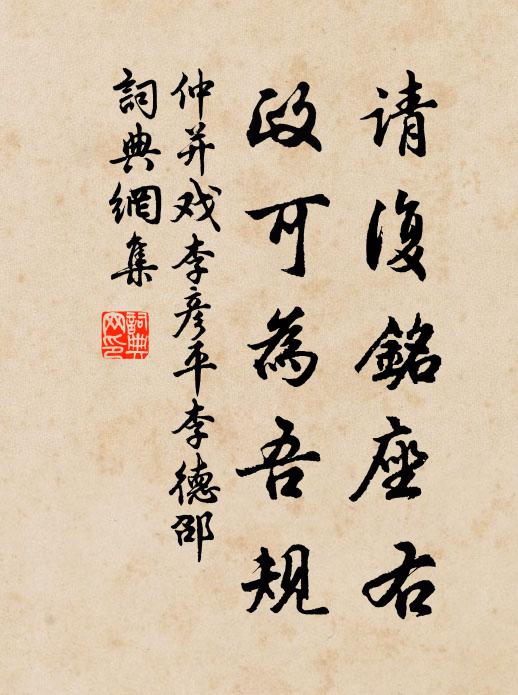 请復銘座右
政可為吾规
仲并戏李彦平李德邵
詞典網集
詞典
网印